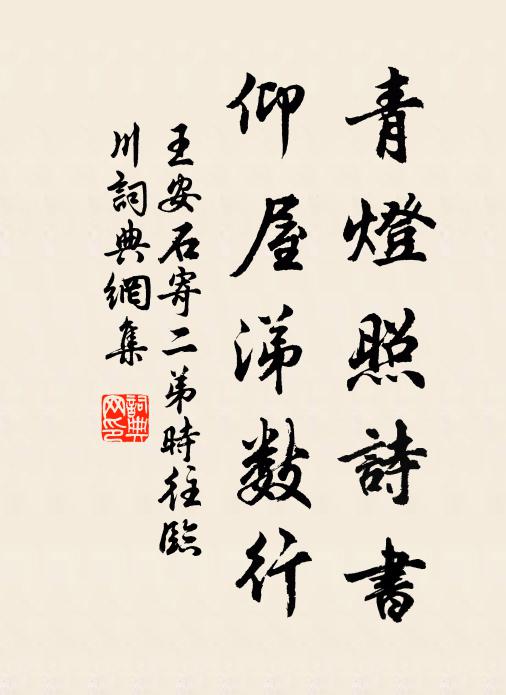 青燈照詩書
仰屋涕數行
王安石寄二弟時往臨
川詞典網集
詞典
网印